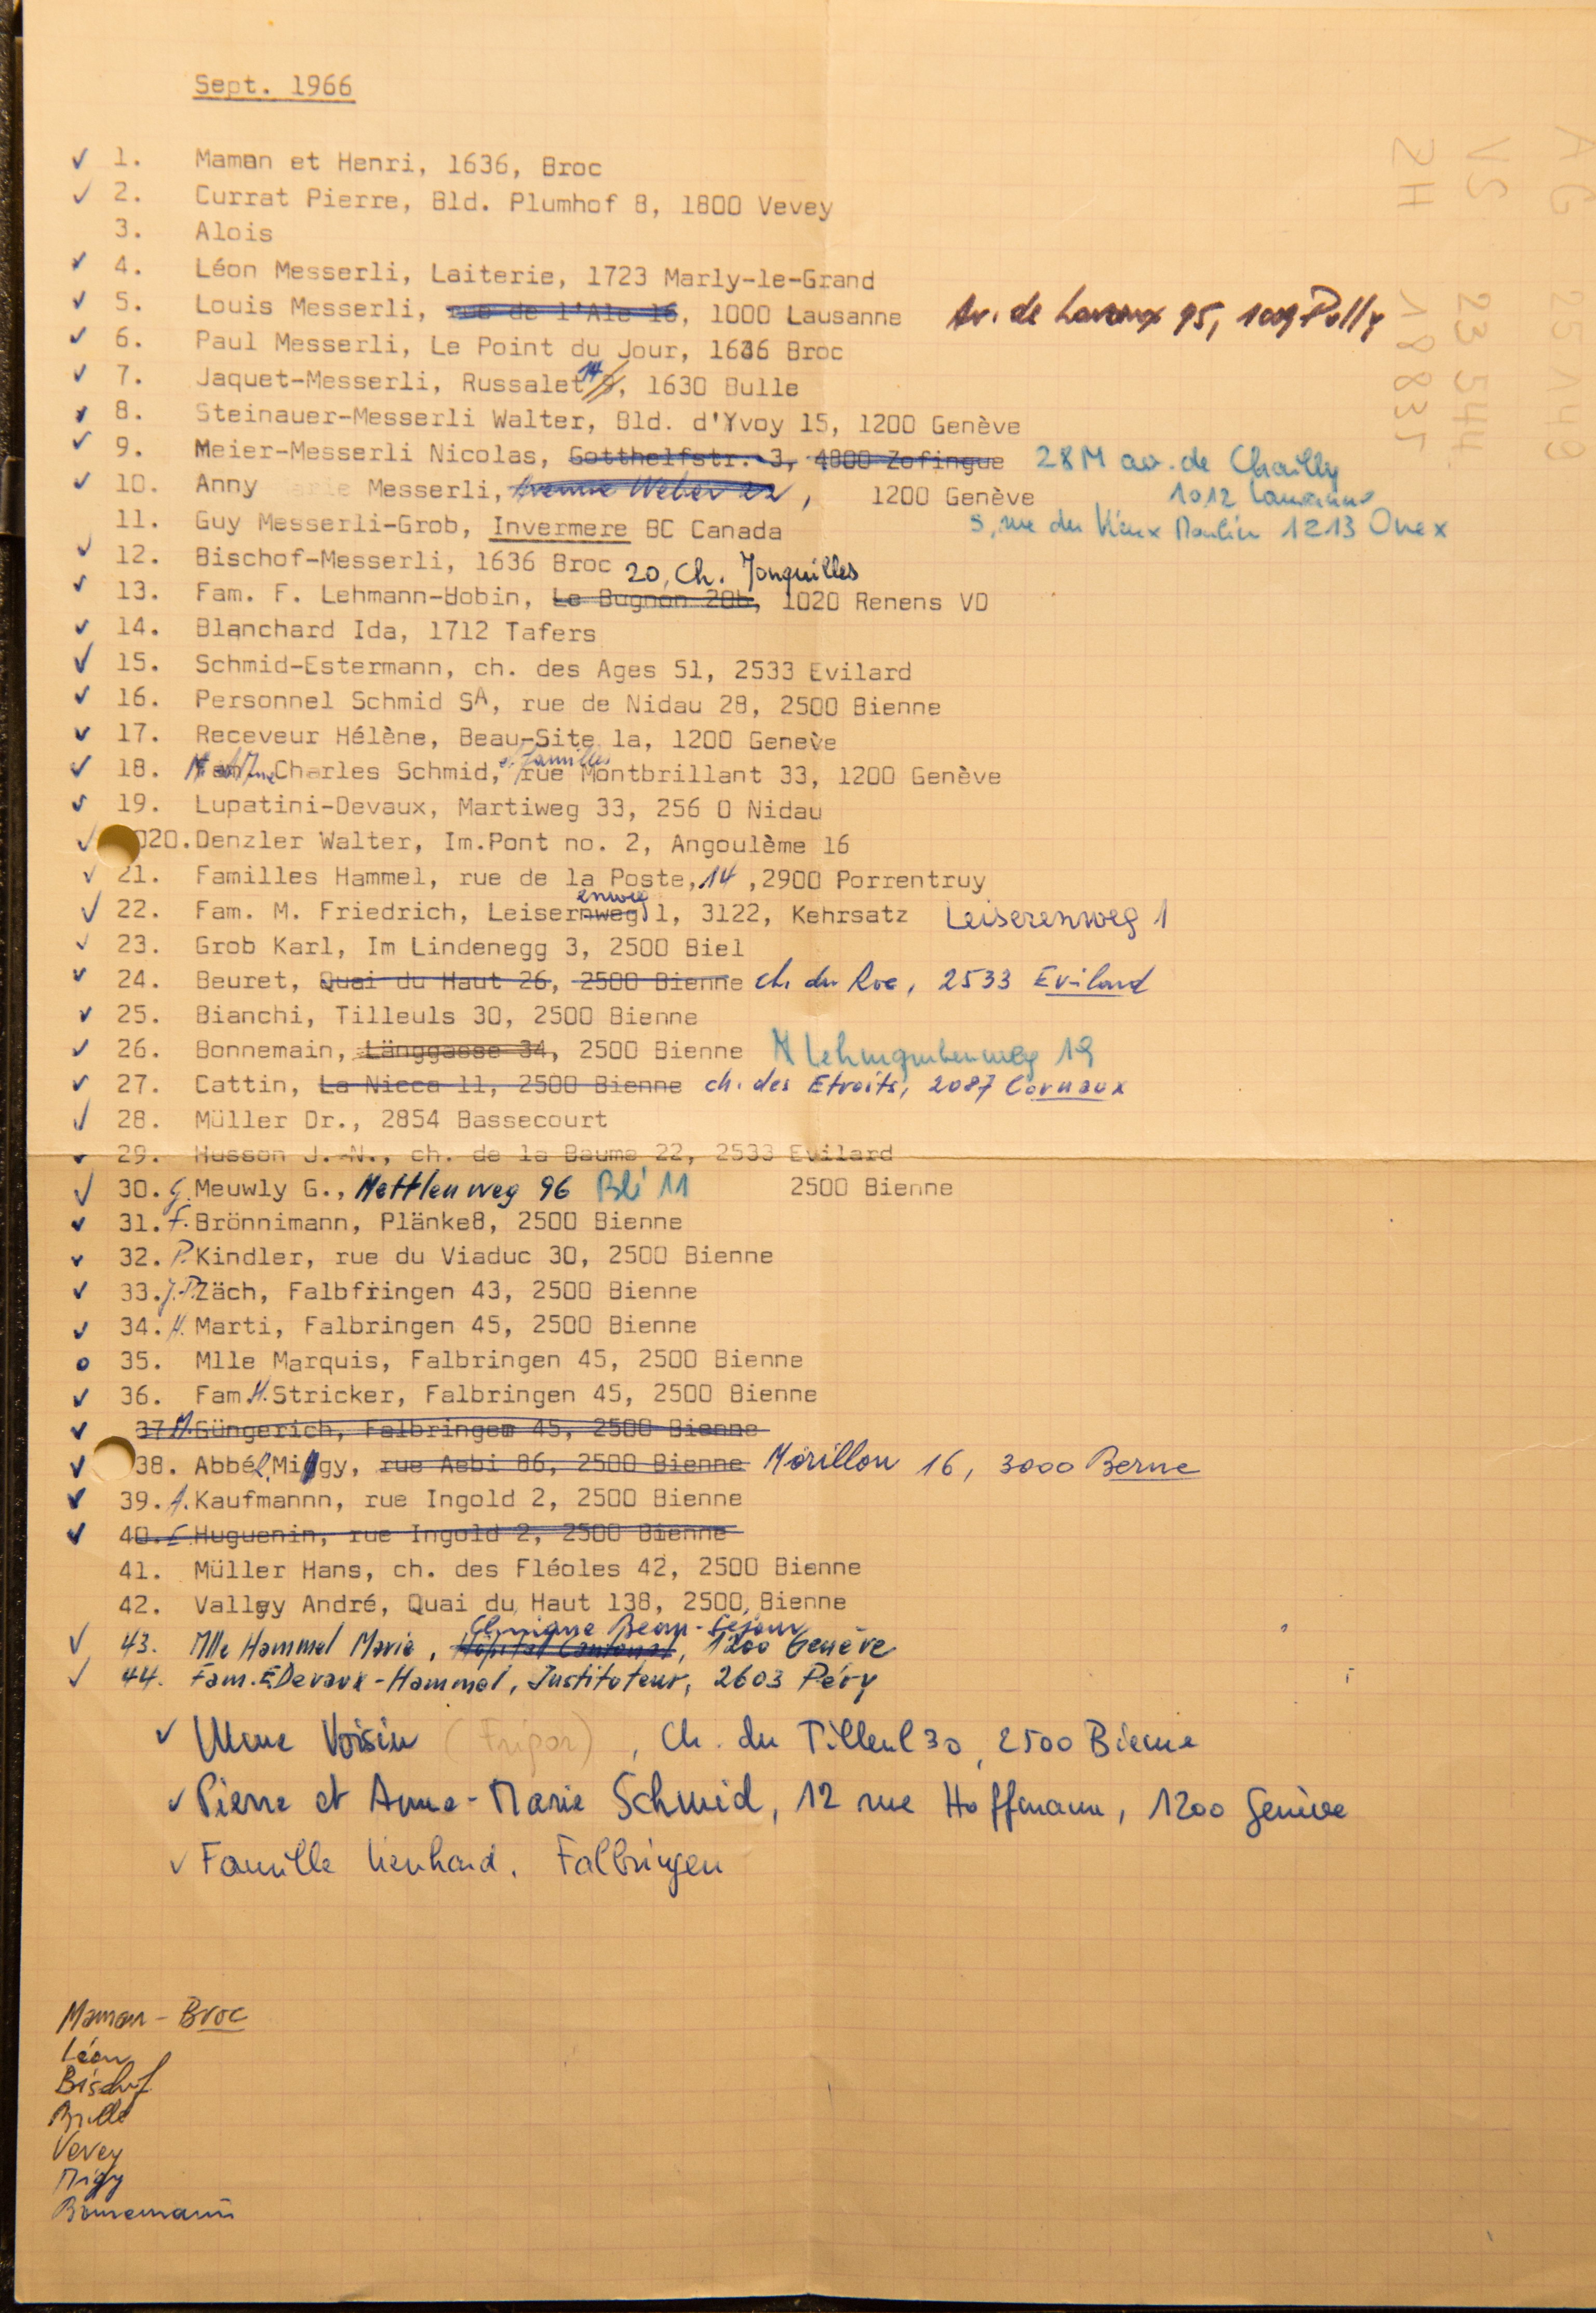 Sept. 1966
✓ 1. Maman et Henri, 1636, Broc
✓ 2. Currat Pierre, Bld. Plumhof 8, 1800 Vevey
3. Alois
✓ 4. Léon Messerli, Laiterie, 1723 Marly-le-Grand
✓ 5. Louis Messerli, rue de l'Ale 16, 1000 Lausanne Av. de Lavaux 95, 1009 Pully
✓ 6. Paul Messerli, Le Point du Jour, 1636 Broc
✓ 7. Jaquet-Messerli, Russalet 14, 1630 Bulle
✓ 8. Steinauer-Messerli Walter, Bld. d'Yvoy 15, 1200 Genève
✓ 9. Meier-Messerli Nicolas, Gotthelfstr. 3, 4800 Zofingue 28M av. de Chailly
1012 Lausanne
✓ 10. Anny Messerli, Avenue Weber 22, 1200 Genève
5, rue du Vieux Moulin 1213 Onex
11. Guy Messerli-Grob, Invermere BC Canada
✓ 12. Bischof-Messerli, 1636 Broc
20, Ch. Jonquilles
✓ 13. Fam. F. Lehmann-Hobin, Le Bugnon 20b, 1020 Renens VD
✓ 14. Blanchard Ida, 1712 Tafers
✓ 15. Schmid-Estermann, ch. des Ages 51, 2533 Evilard
✓ 16. Personnel Schmid SA, rue de Nidau 28, 2500 Bienne
✓ 17. Receveur Hélène, Beau-Site 1a, 1200 Genève
✓ 18. M et Mme Charles Schmid, et familles rue Montbrillant 33, 1200 Genève
✓ 19. Lupatini-Devaux, Martiweg 33, 256 0 Nidau
✓ 020. Denzler Walter, Im.Pont no. 2, Angoulème 16
✓ 21. Familles Hammel, rue de la Poste, 14 ,2900 Porrentruy
✓ 22. Fam. M. Friedrich, Leisernweg enweg 1, 3122, Kehrsatz Leiserenweg 1
✓ 23. Grob Karl, Im Lindenegg 3, 2500 Biel
✓ 24. Beuret, Quai du Haut 26, 2500 Bienne ch. du Roc, 2533 Evilard
✓ 25. Bianchi, Tilleuls 30, 2500 Bienne
✓ 26. Bonnemain, Länggasse 34, 2500 Bienne Lehmgrubenweg 19
✓ 27. Cattin, La Nicca 11, 2500 Bienne ch. des Etroits, 2087 Cornaux
✓ 28. Müller Dr., 2854 Bassecourt
✓ 29. Husson J.-N., ch. de la Baume 22, 2533 Evilard
✓ 30. G. Meuwly G., Mettlenweg 96 Bli 11 2500 Bienne
✓ 31. F. Brönnimann, Plänke8, 2500 Bienne
✓ 32. P. Kindler, rue du Viaduc 30, 2500 Bienne
✓ 33. J.P. Zäch, Falbfringen 43, 2500 Bienne
✓ 34. H. Marti, Falbringen 45, 2500 Bienne
o 35. Mlle Marquis, Falbringen 45, 2500 Bienne
✓ 36. Fam H. Stricker, Falbringen 45, 2500 Bienne
✓ 37 M. Güngerich, Falbringem 45, 2500 Bienne
✓ 38. Abbé R. Migy, rue Aebi 86, 2500 Bienne Morillon 16, 3000 Berne
✓ 39. A. Kaufmannn, rue Ingold 2, 2500 Bienne
✓ 40. E. Huguenin, rue Ingold 2, 2500 Bienne
41. Müller Hans, ch. des Fléoles 42, 2500 Bienne
42. Valley André, Quai du Haut 138, 2500, Bienne
Clinique Beau-Séjour
✓ 43. Mlle Hammel Marie, Hôpital Cantonal, 1200 Genève
✓ 44. Fam. E Devaux-Hammel, Instituteur, 2603 Péry
✓ Mme Voisin (Frigor), Ch. du Tilleul 30, 2500 Bienne
✓ Pierre et Anne-Marie Schmid, 12 rue Hoffmann, 1200 Genève
✓ Famille Lienhard, Falbringen
Maman - Broc
Léon
Bischof
Bulle
Vevey
Migy
Bonnemain
AG 25149
VS 23 544
ZH 18835